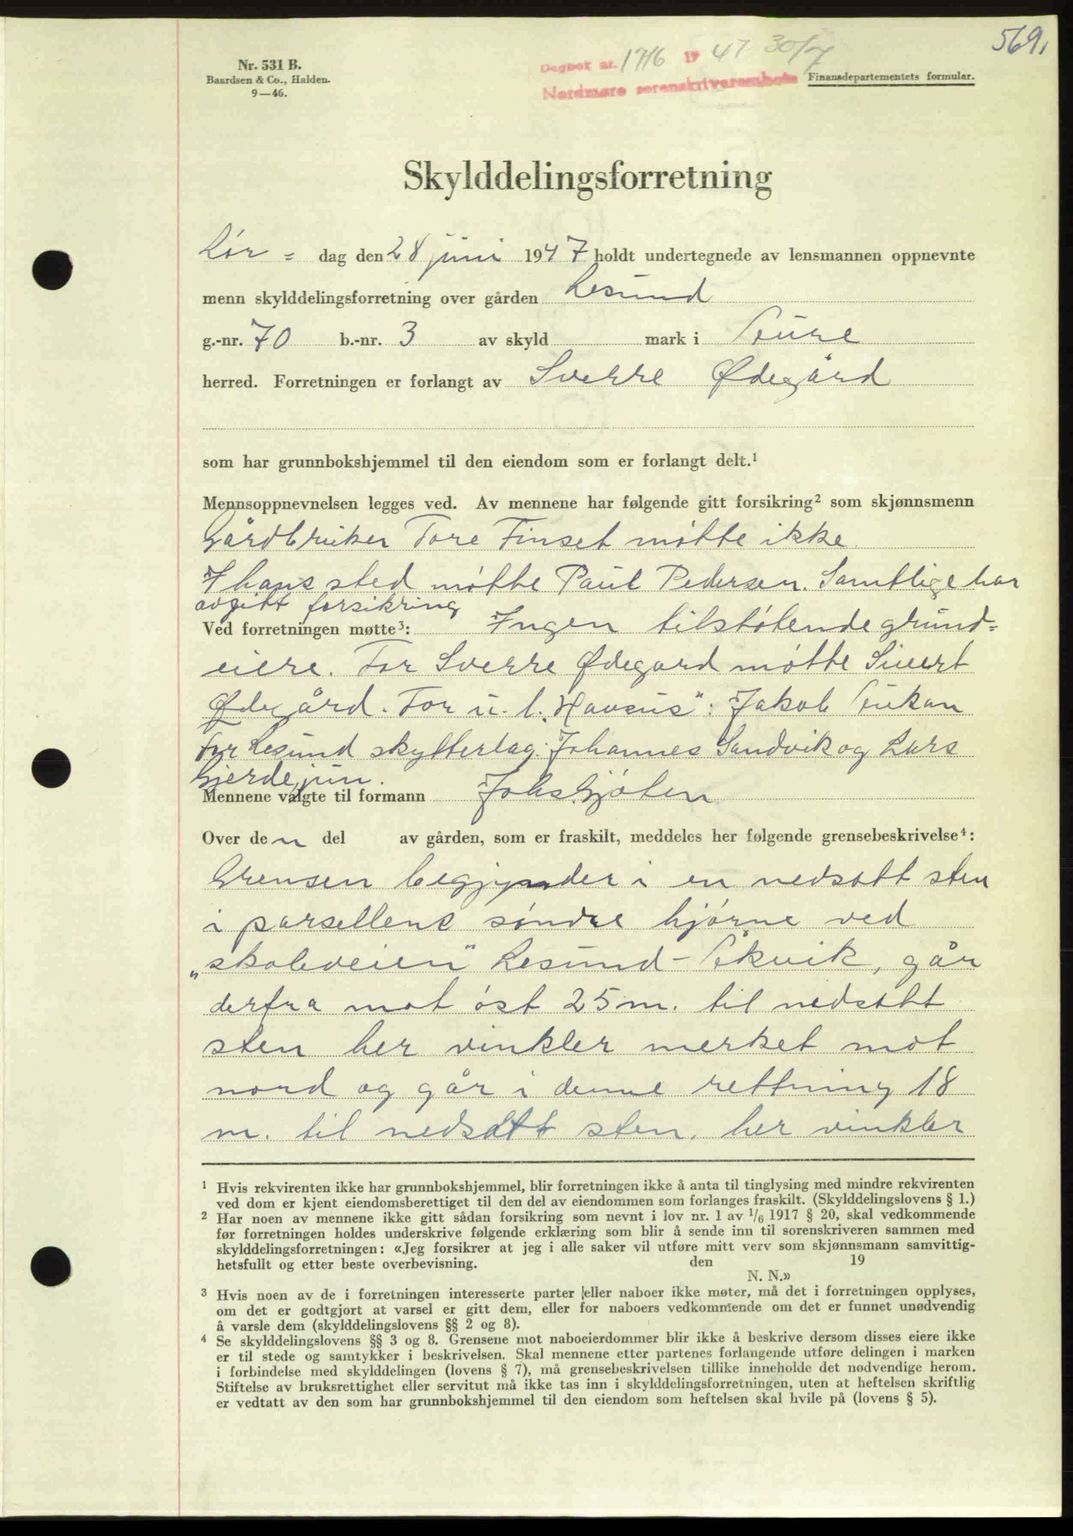 569.
Nr. 531 B.
Baardsen & Co., Halden.
9—46.
Dagbok nr. 1716 1947 30/7
Nordmøre sorenskriverembete
Finansdepartementets formular.
Skylddelingsforretning
Lør - dag den 28 juni 1947 holdt undertegnede av lensmannen oppnevnte
menn skylddelingsforretning over gården Lesund
g.-nr. 70 b.-nr. 3 av skyld mark i Aure
herred. Forretningen er forlangt av Sverre Ødegård
som har grunnbokshjemmel til den eiendom som er forlangt delt.¹
Mennsoppnevnelsen legges ved. Av mennene har følgende gitt forsikring² som skjønnsmenn
Gårdbruker Tore Finset møtte ikke.
I hans sted møtte Paul Pedersen. Samtlige har
avgitt forsikring
Ved forretningen møtte³: Ingen tilstøtende grund=
eiere. For Sverre Ødegard møtte Sivert
Ødegård. For u. l. „Havsus": Jakob
For Lesund skytterlag: Johannes Sandvik og Lars
Gjerde jun.
Mennene valgte til formann Johs. Gjøten
Over den del av gården, som er fraskilt, meddeles her følgende grensebeskrivelse⁴:
Grensen begynder i en nedsatt sten
i parsellens søndre hjørne ved
„skoleveien" Lesund - , går
derfra mot øst 25 m. til nedsatt
sten her vinkler merket mot
nord og går i denne rettning 18
m. til nedsatt sten. her vinkler
¹ Hvis rekvirenten ikke har grunnbokshjemmel, blir forretningen ikke å anta til tinglysing med mindre rekvirenten
ved dom er kjent eiendomsberettiget til den del av eiendommen som forlanges fraskilt. (Skylddelingslovens § 1.)
² Har noen av mennene ikke gitt sådan forsikring som nevnt i lov nr. 1 av 1/6 1917 § 20, skal vedkommende
før forretningen holdes underskrive følgende erklæring som blir å sende inn til sorenskriveren sammen med
skylddelingsforretningen: «Jeg forsikrer at jeg i alle saker vil utføre mitt verv som skjønnsmann samvittig-
hetsfullt og etter beste overbevisning. den 19
N. N.»
³ Hvis noen av de i forretningen interesserte parter eller naboer ikke møter, må det i forretningen opplyses,
om det er godtgjort at varsel er gitt dem, eller for naboers vedkommende om det er funnet unødvendig
å varsle dem (skylddelingslovens §§ 2 og 8).
⁴ Se skylddelingslovens §§ 3 og 8. Grensene mot naboeierdommer blir ikke å beskrive dersom disses eiere ikke
er til stede og samtykker i beskrivelsen. Skal mennene etter partenes forlangende utføre delingen i marken
i forbindelse med skylddelingen (lovens § 7), må grensebeskrivelsen tillike inneholde det nødvendige herom.
Stiftelse av bruksrettighet eller servitut må ikke tas inn i skylddelingsforretningen, uten at heftelsen skriftlig
er vedtatt av den som har grunnbokshjemmel til den eiendom som heftelsen skal hvile på (lovens § 5).